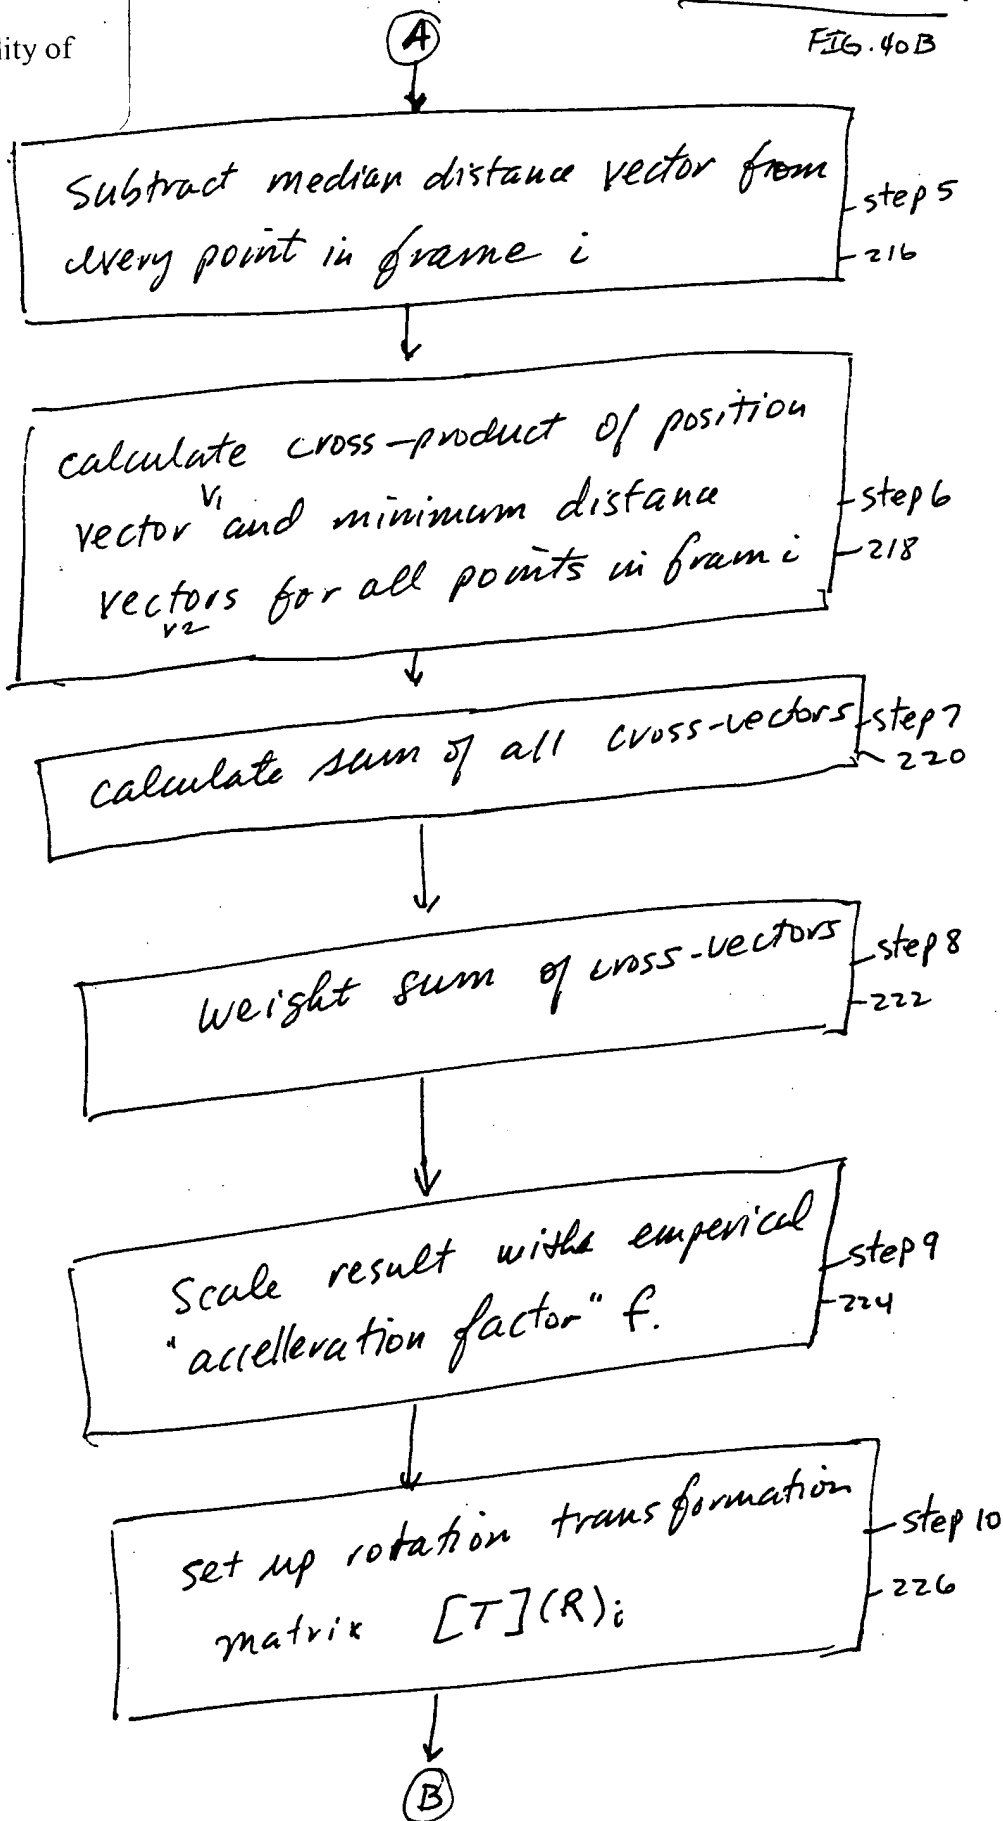 lity of
A
FIG. 40B
Subtract median distance vector from
every point in frame i
step 5
216
calculate cross-product of position
vector V1 and minimum distance
vectors for all points in fram i
v2
step 6
218
calculate sum of all cross-vectors
step 7
220
weight sum of cross-vectors
step 8
222
Scale result with emperical
"accelleration factor" f.
step 9
224
set up rotation transformation
matrix [T](R)i
step 10
226
B